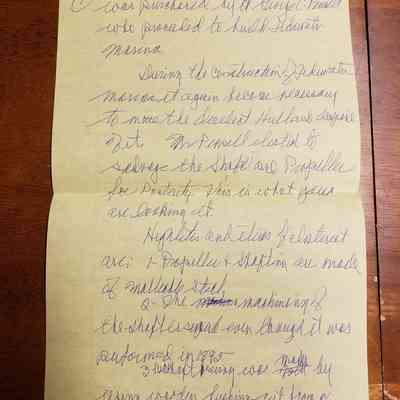 was purchased by Mr George Pinsell
who proceeded to build Tidewater
Marina
During the construction of Tidewater
Marina it again became necessary
to move the derelict Hull and dispose
of it Mr Pinsell elected to
salvage the Shaft and Propeller
for Posterity. This is what you
are looking at.
Highlites and items of interest
are; 1- Propeller + Shafting are made
of malleable steel,
2- The machining of
the shaft is superb even though it was
performed in 1895
3 was made by
using wooden bushing cut from a